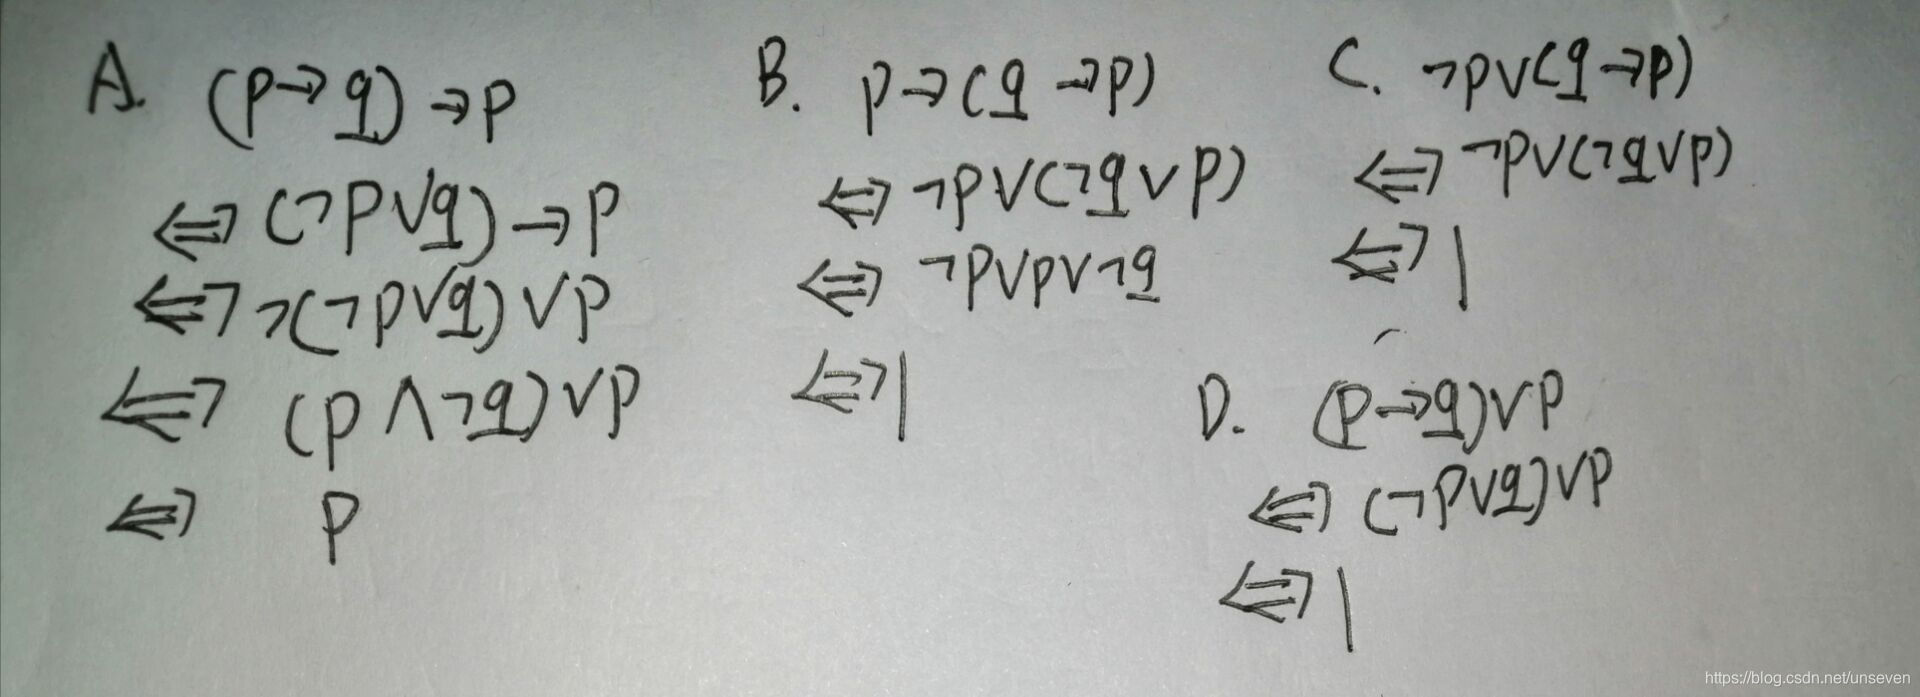 A. (p→q)→p
⇔ (¬p∨q)→p
⇔ ¬(¬p∨q)∨p
⇔ (p∧¬q)∨p
⇔ p
B. p→(q→p)
⇔ ¬p∨(¬q∨p)
⇔ ¬p∨p∨¬q
⇔ 1
C. ¬p∨(q→p)
⇔ ¬p∨(¬q∨p)
⇔ 1
D. (p→q)∨p
⇔ (¬p∨q)∨p
⇔ 1
https://blog.csdn.net/unseven